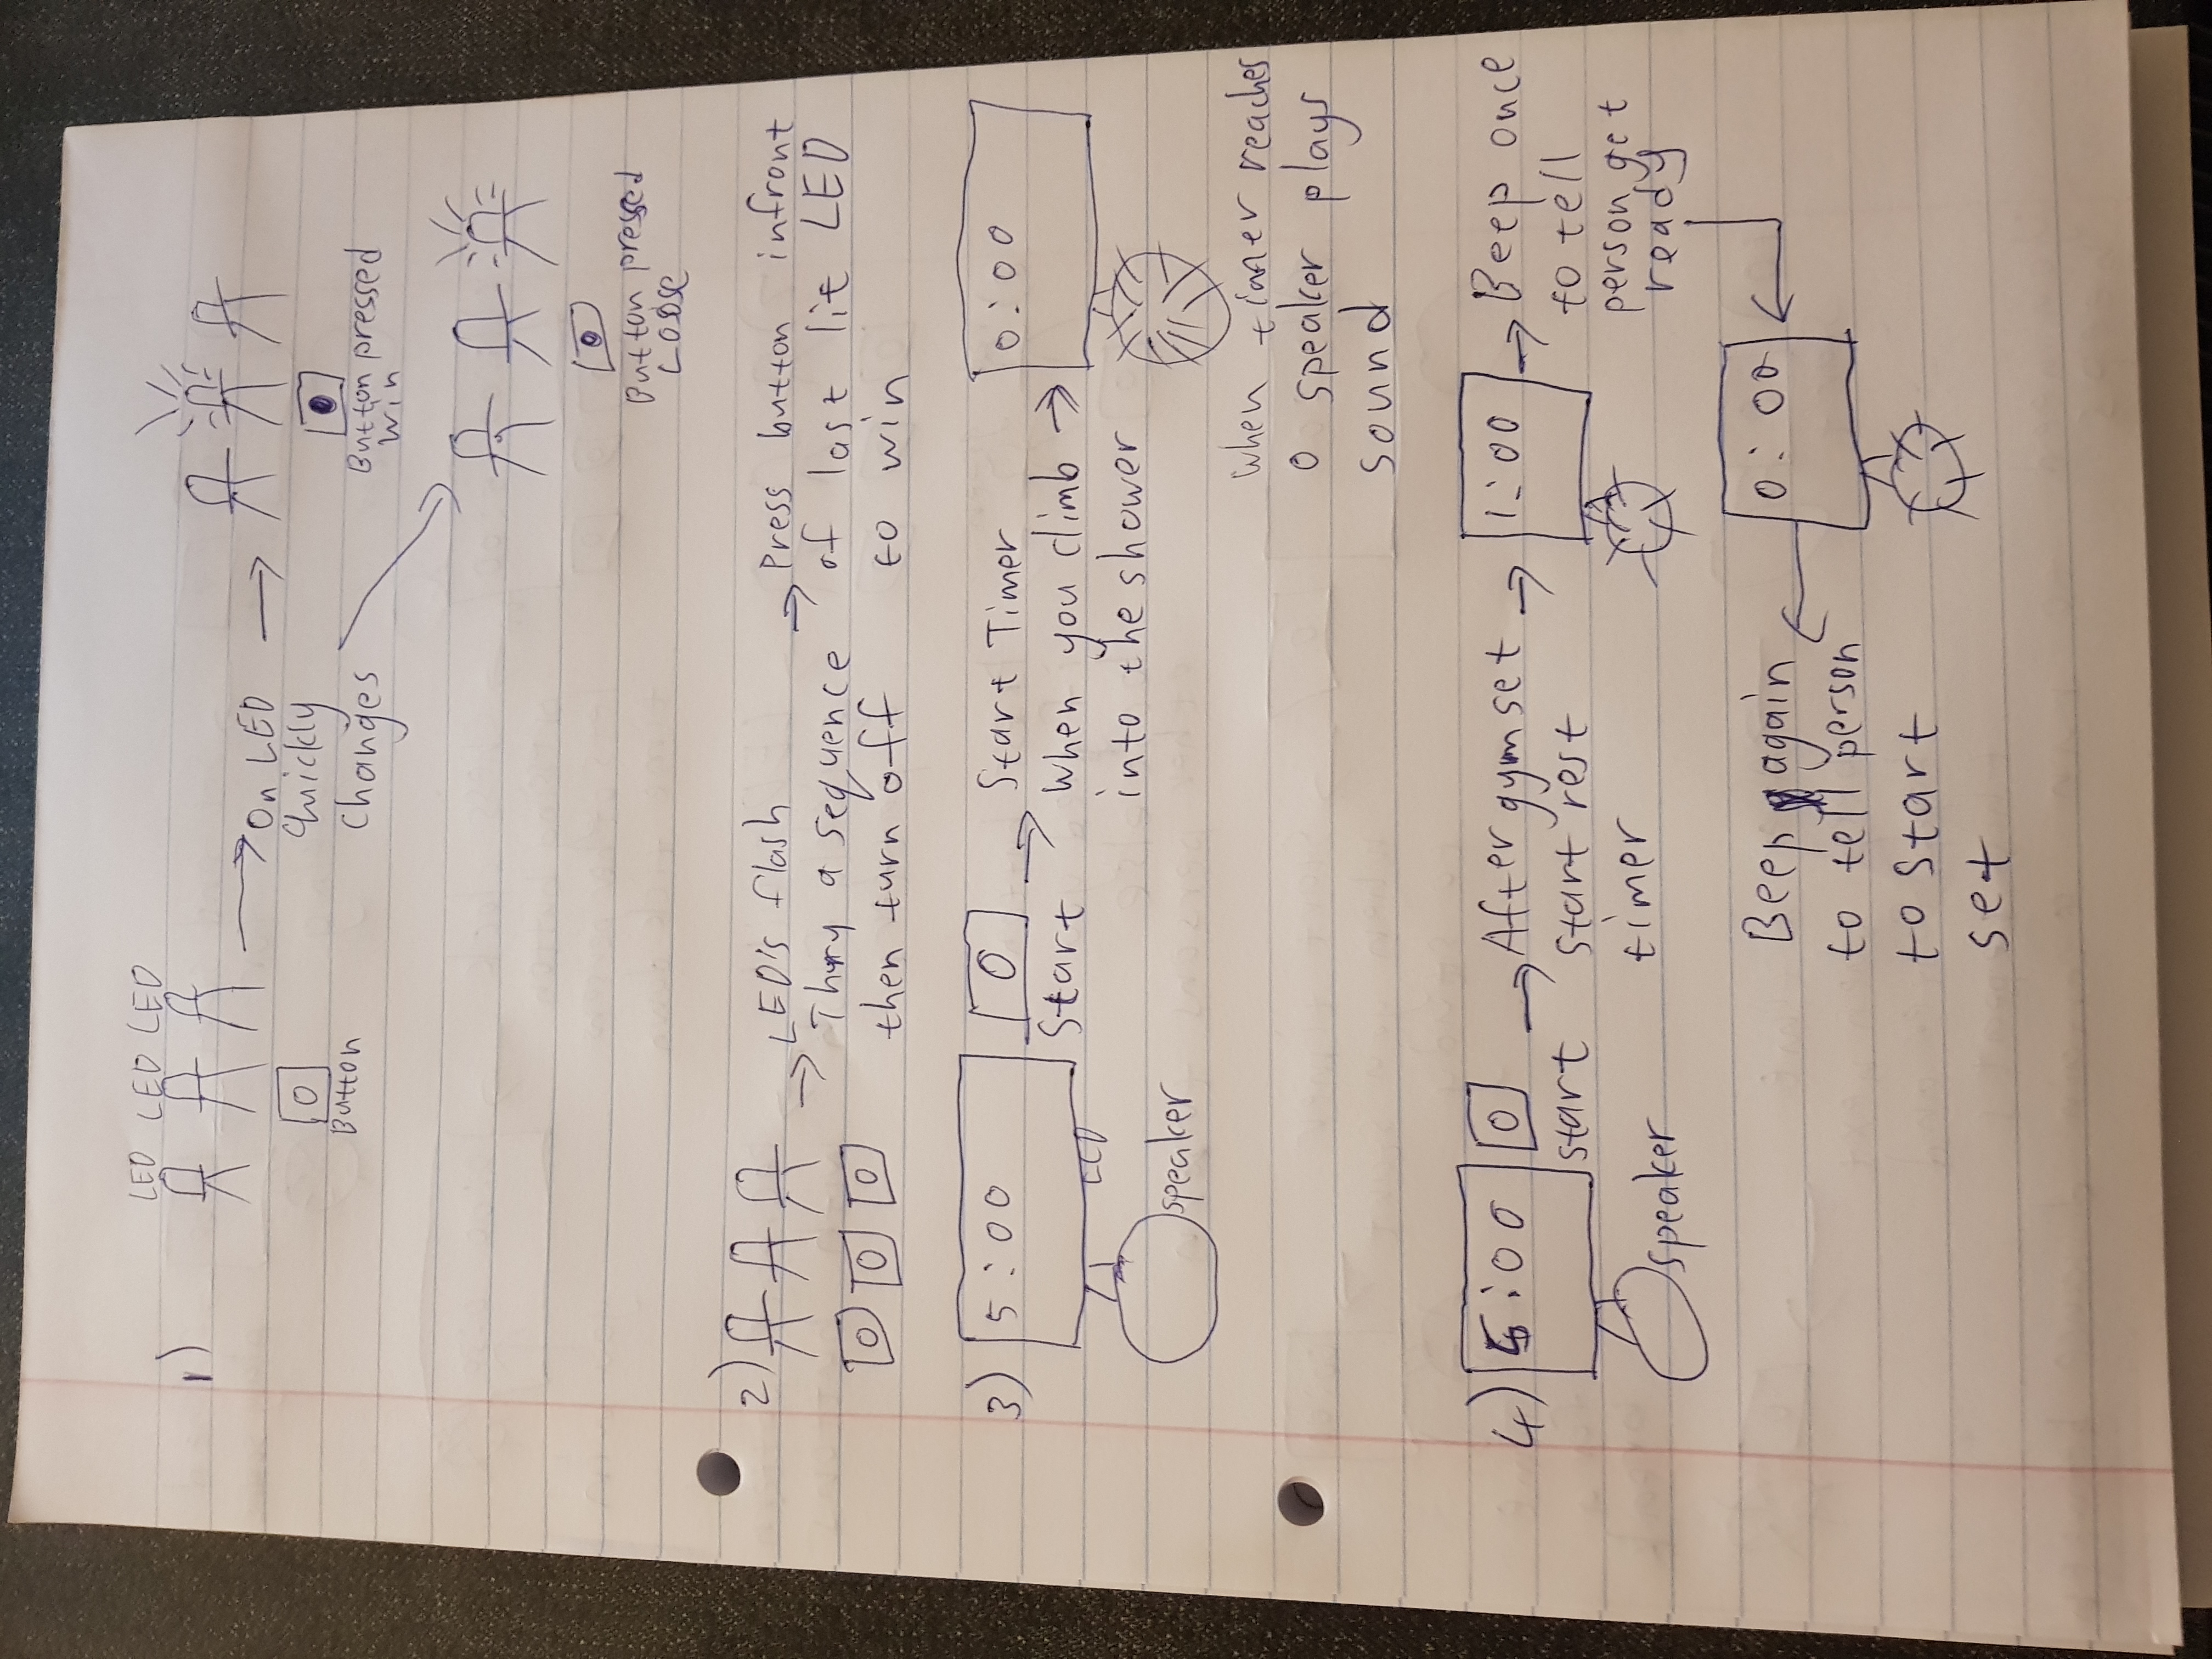 1)
LED LED LED
Button
On LED
quickly
changes
Button pressed
win
Button pressed
Loose
2)
LED's flash
Thury a sequence
then turn off
Press button infront
of last lit LED
to win
3)
5:00
LCD
Start
speaker
Start Timer
when you climb
into the shower
0:00
when timer reaches
0 speaker plays
sound
4)
5:00
start
speaker
After gym set
start rest
timer
1:00
Beep once
to tell
person get
ready
0:00
Beep again
to tell person
to start
set